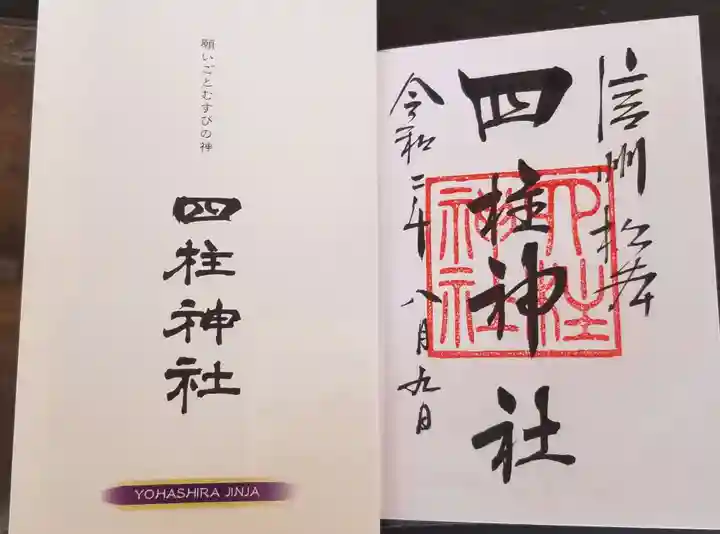 願いごとむすびの神
四柱神社
YOHASHIRA JINJA
信州 松本
四柱神社
四柱神社
令和二年八月九日